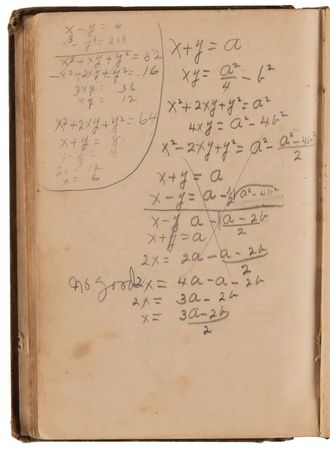 x - y = 4
x³ - y³ = 208
x² + xy + y² = 52
-x² - 2xy + y² = 16
3xy = 36
xy = 12
x² + 2xy + y² = 64
x + y = 8
x - y = 4
2x = 12
x = 6
x + y = a
xy = a²/4 - b²
x² + 2xy + y² = a²
4xy = a² - 4b²
x² - 2xy + y² = a² - a² - 4b²/2
x + y = a
x - y = a - ½√a² - 4b²
x - y a - a - 2b/2
x + y = a
2x = 2a - a - 2b/2
no good 2x = 4a - a - 2b
2x = 3a - 2b
x = 3a - 2b/2